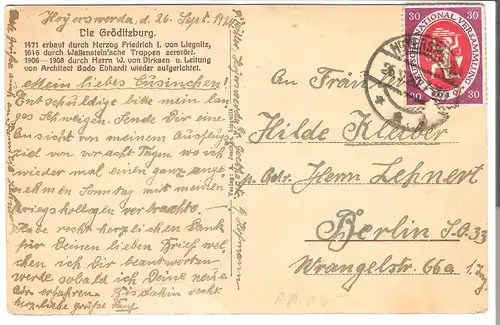 Hoyerswerda, d. 26. Sept. 19
Die Gröditzburg.
1471 erbaut durch Herzog Friedrich I. von Liegnitz,
1646 durch Wallenstein'sche Truppen zerstört.
1906—1908 durch Herrn W. von Dirksen u. Leitung
von Architect Bodo Ebhardt wieder aufgerichtet.
Mein liebes Cusinchen
Entschuldige bitte mein lan-
ges Schweigen. Sende Dir eine
Ansicht von meinem Ausflugs
ziel von vor acht Tagen wo ich
wieder mal einen ganz ange-
nehmen Sonntag mit meinen
Kriegskollegen verbrachte.
Habe recht herzlichen Dank
für Deinen lieben Brief wel-
chen ich Dir beantworten
werde sobald ich Deine neue
erfahren. Bis dahin recht
herzliche Grüße
Verlag:
30 DEUTSCHE NATIONALVERSAMMLUNG 1919 30
30 30
An Frau
Hilde Kleiber
p. Adr. Herrn Lehnert
Berlin S.O. 33
Wrangelstr. 66a